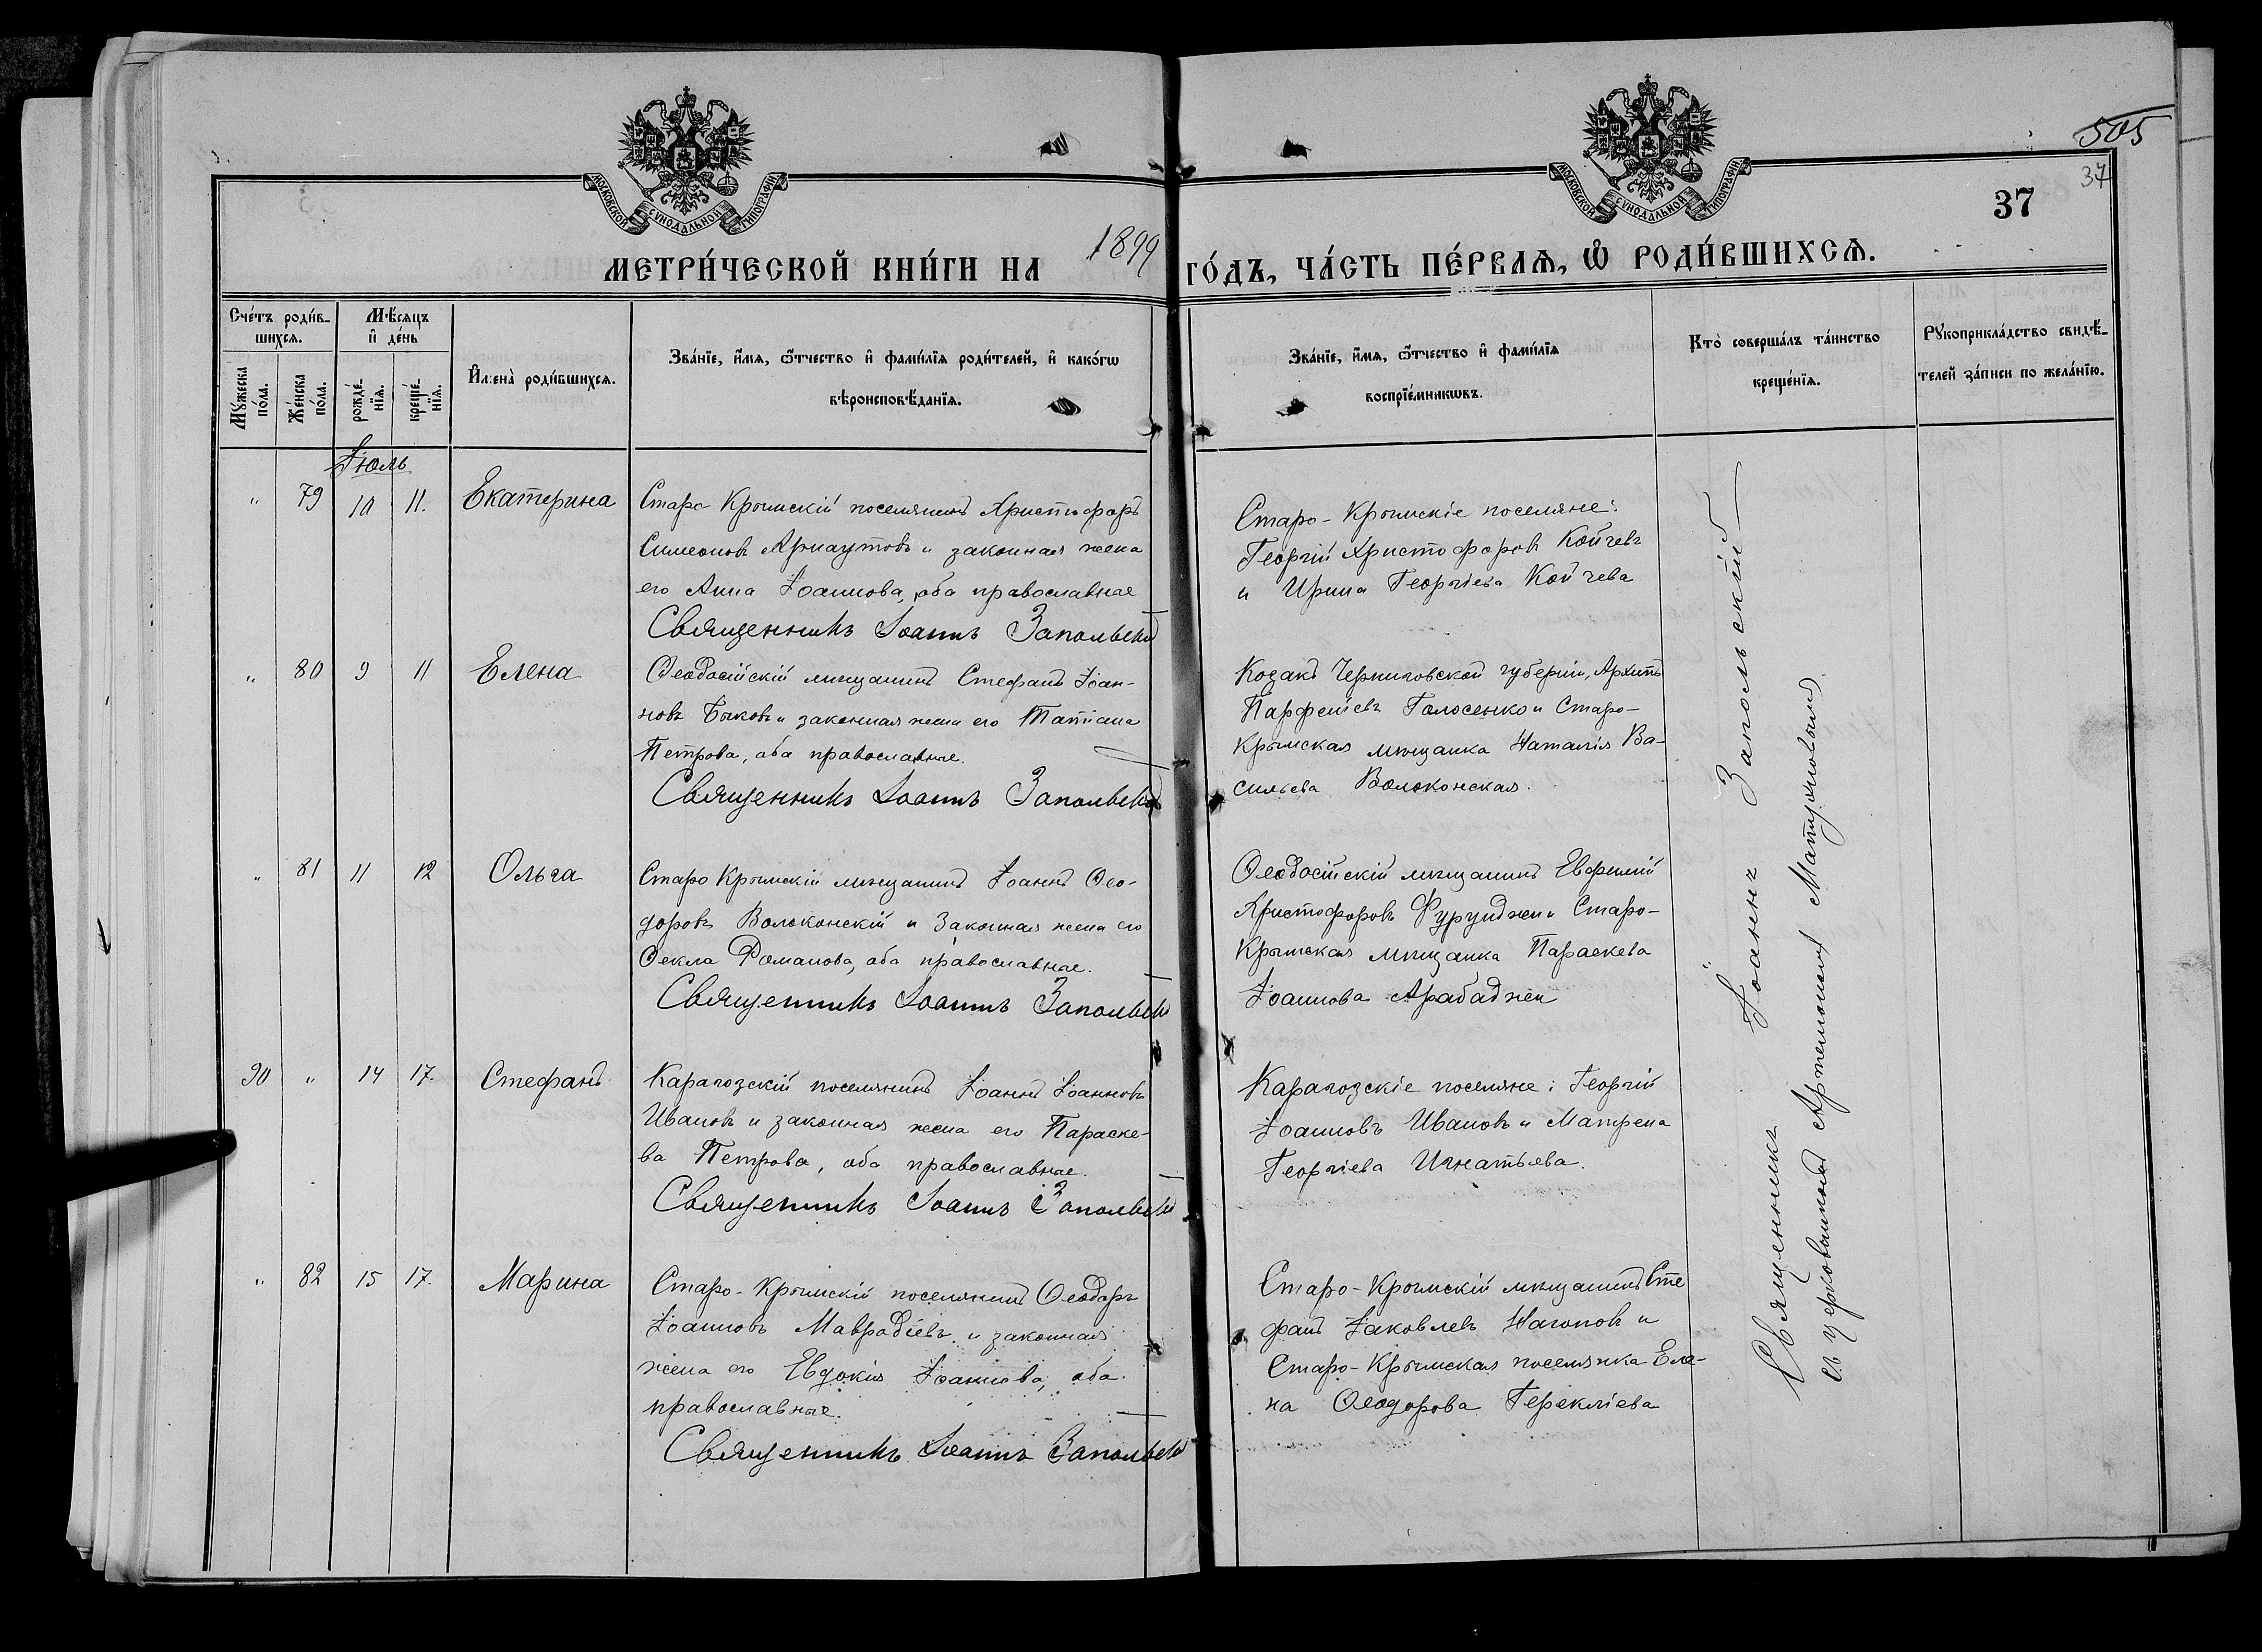 505
37
37
МОСКОВСКОЙ СУНОДАЛЬНОЙ ТИПОГРАФІИ
МОСКОВСКОЙ СУНОДАЛЬНОЙ ТИПОГРАФІИ
МЕТРИ́ЧЕСКОЙ КНИ́ГИ НА 1899 ГО́ДЪ, ЧА́СТЬ ПЕ́РВАѦ, Ѡ҆ РОДИ́ВШИХСѦ.
Сче́тъ роди́в-
шихсѧ.
Мꙋ́жеска по́ла.
Же́нска по́ла.
Мѣ́сѧцъ
и҆ де́нь
рожде́-
нїѧ.
креще́-
нїѧ.
И҆мена̀ роди́вшихсѧ.
Зва́нїе, и҆́мѧ, ѻ҆́тчество и҆ фами́лїѧ роди́телей, и҆ како́гѡ
вѣроисповѣ́данїѧ.
Зва́нїе, и҆́мѧ, ѻ҆́тчество и҆ фами́лїѧ
воспрїе́мникѡвъ.
Кто̀ соверша́лъ та́инство
креще́нїѧ.
Рꙋкоприкла́дство свидѣ́-
телей за́писи по жела́нїю.
Іюль
" 79 10 11. Екатерина
Старо Крымскій поселянинъ Христофоръ
Симеоновъ Арнаутовъ и законная жена
его Анна Іоаннова, оба православные
Священникъ Іоаннъ Запольскій
Старо-Крымскіе поселяне:
Георгій Христофоровъ Койчевъ
и Ирина Георгіева Койчева
" 80 9 11 Елена
Ѳеодосійскій мѣщанинъ Стефанъ Іоан-
новъ Быковъ и законная жена его Татіана
Петрова, оба православные.
Священникъ Іоаннъ Запольскій
Козакъ Черниговской губерніи, Архипъ
Парфеніевъ Голосенко и Старо-
Крымская мѣщанка Наталія Ва-
сильева Волоконская.
" 81 11 12 Ольга
Старо Крымскій мѣщанинъ Іоаннъ Ѳео-
доровъ Волоконскій и законная жена его
Ѳекла Романова, оба православные.
Священникъ Іоаннъ Запольскій
Ѳеодосійскій мѣщанинъ Евфимій
Христофоровъ Фурунджи и Старо-
Крымская мѣщанка Параскева
Іоаннова Арабаджи
90 " 14 17. Стефанъ
Карагозскій поселянинъ Іоаннъ Іоанновъ
Ивановъ и законная жена его Параске-
ва Петрова, оба православные.
Священникъ Іоаннъ Запольскій
Карагозскіе поселяне: Георгій
Іоанновъ Ивановъ и Матрена
Георгіева Игнатьева.
" 82 15 17. Марина
Старо-Крымскій поселянинъ Ѳеодоръ
Іоанновъ Мавродіевъ и законная
жена его Евдокія Іоаннова, оба
православные.
Священникъ Іоаннъ Запольскій
Старо-Крымскій мѣщанинъ Сте
фанъ Іаковлевъ Нагоповъ и
Старо-Крымская поселянка Еле-
на Ѳеодорова Гереклієва
Священникъ Іоаннъ Запольскій
съ церковникомъ Артемономъ Матушовымъ.